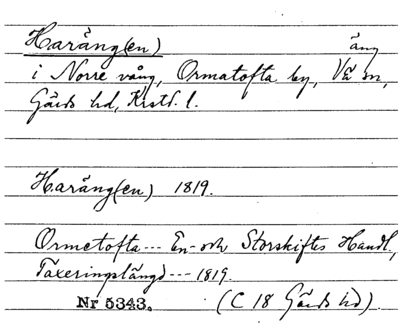 Haräng(en) äng
i Norre vång, Ormatofta by, Vä sn,
Gärds hd, Krstd. l.
Haräng(en) 1819.
Ormetofta --- En- och Storskiftes Handl.,
Taxeringslängd --- 1819.
Nr 5343. (C 18 Gärds hd).